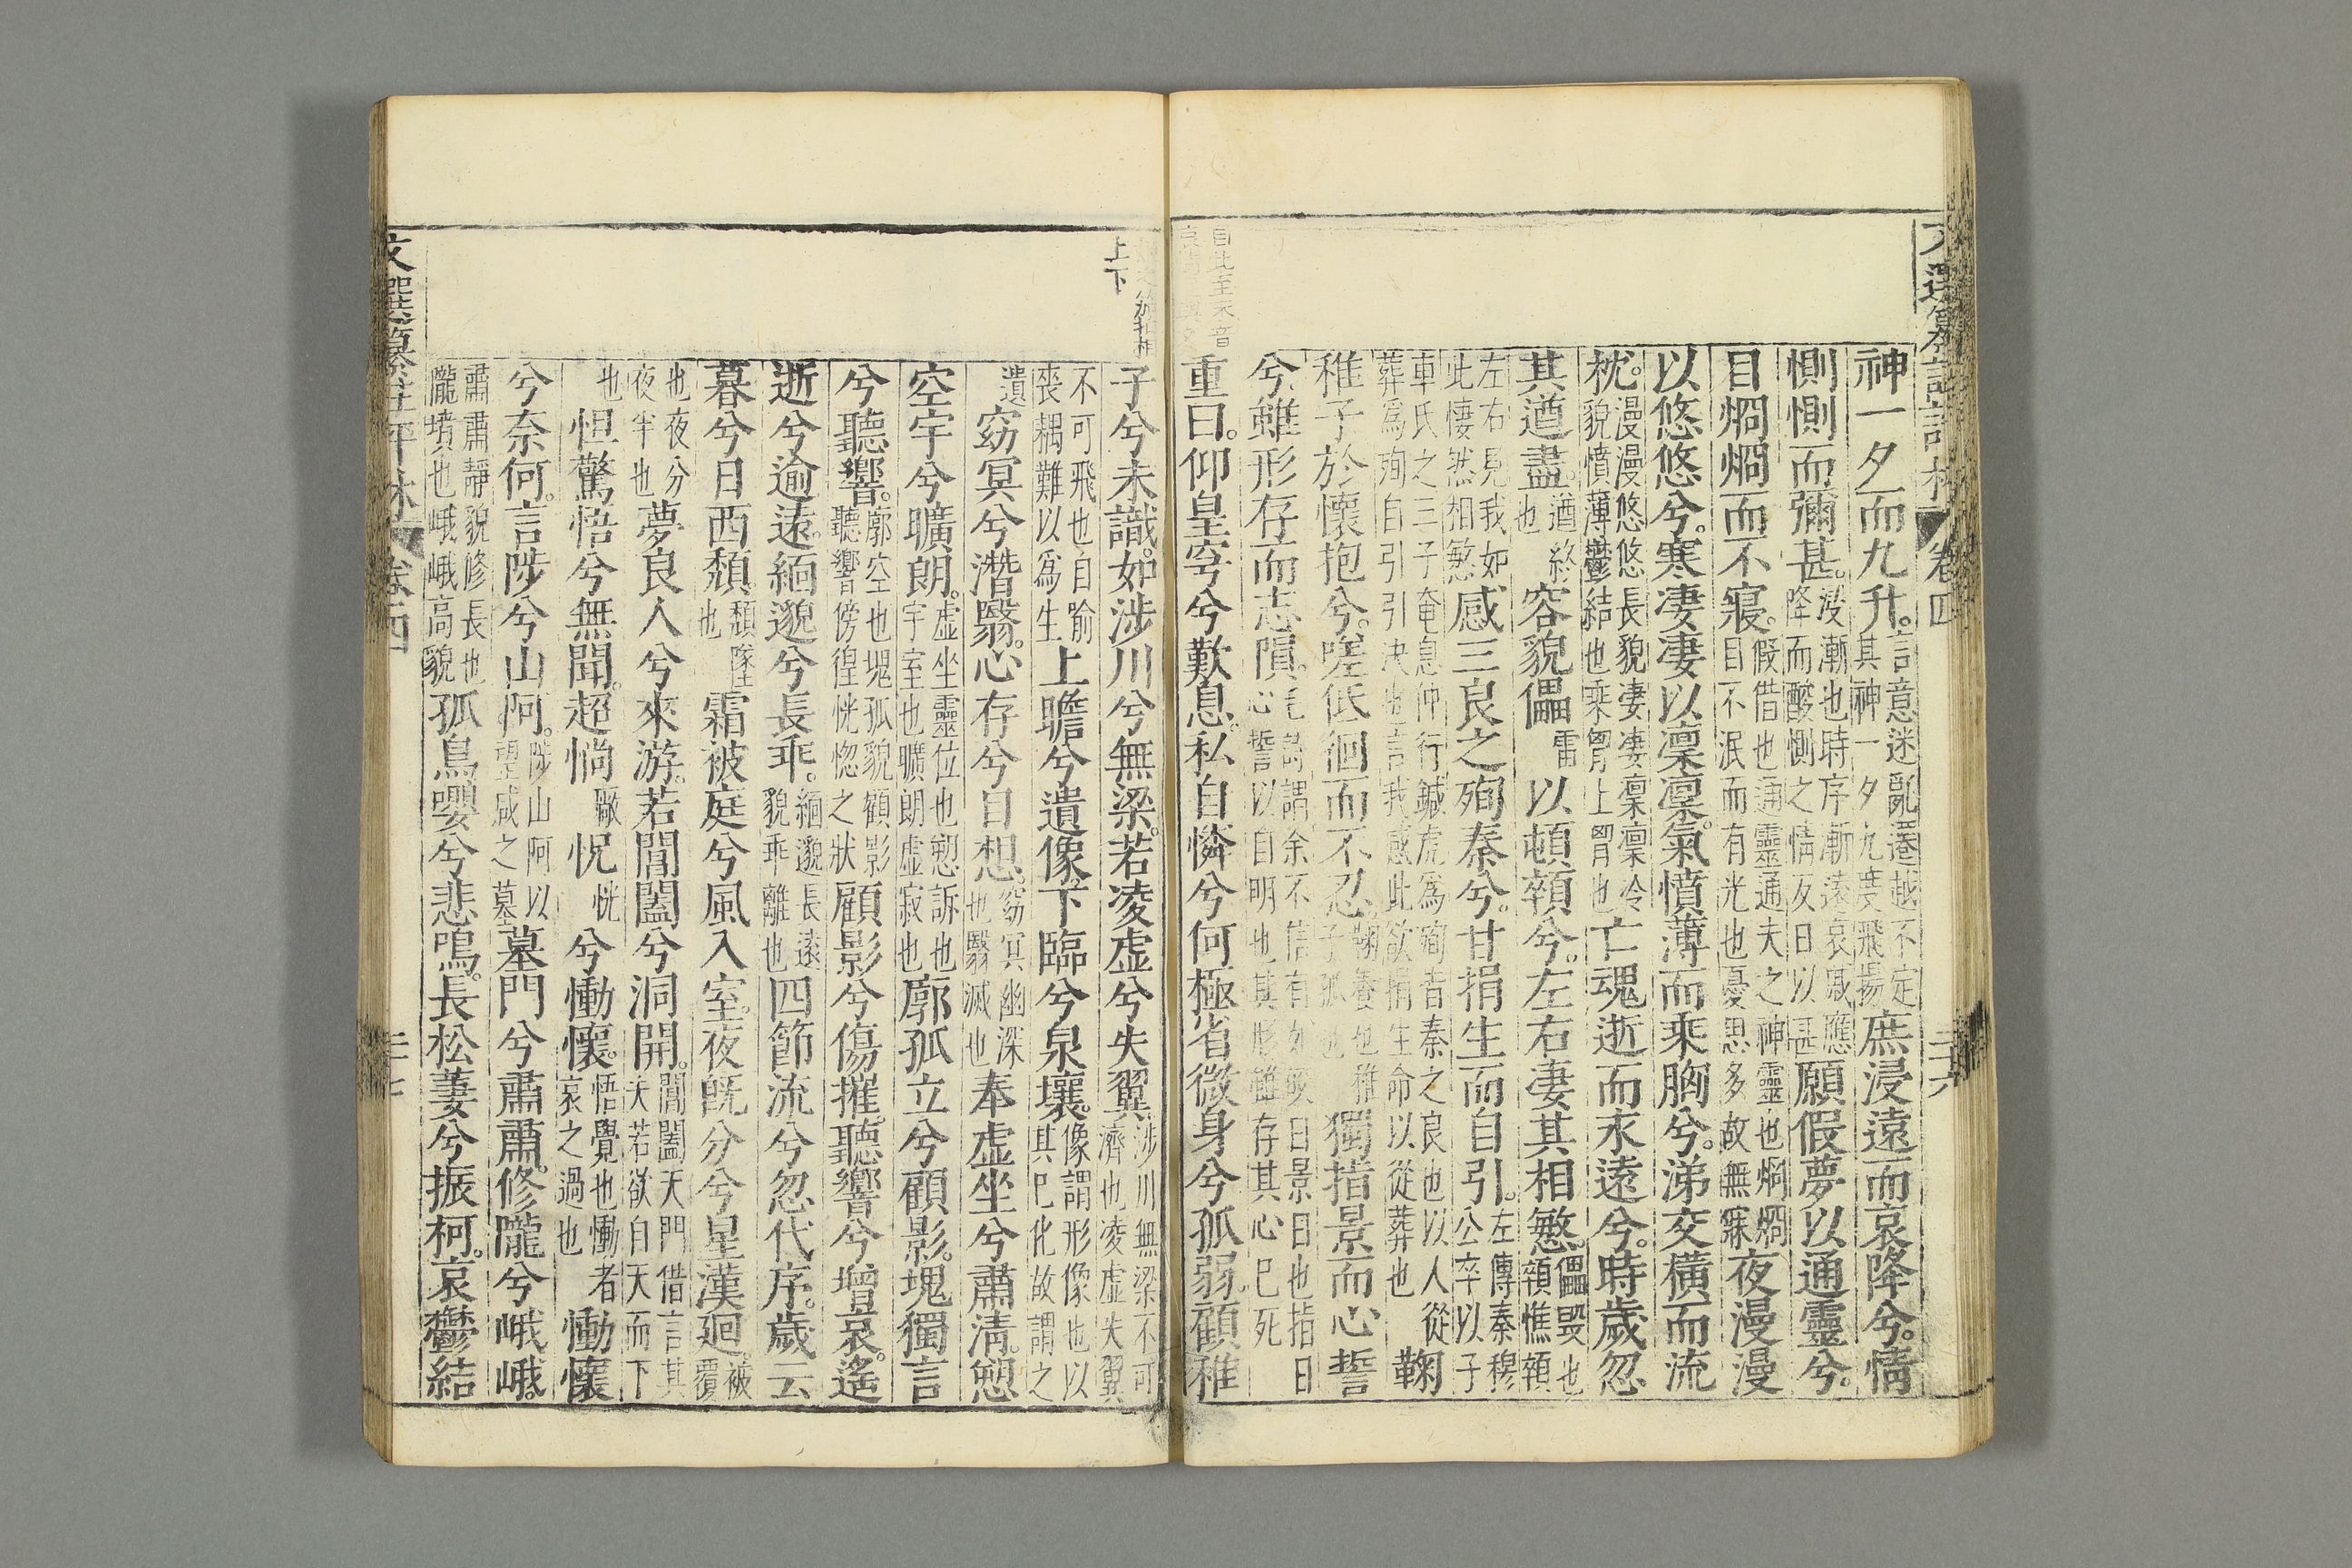 神一夕而九升。言意迷亂遷越不定其神一夕九度飛揚庶浸遠而哀降兮。情
惻惻而彌甚。浸漸也時序漸遠哀戚應降而酸惻之情反日以甚願假夢以通靈兮。
目烱烱而不寢。假借也通靈通夫之神靈也烱烱目不泯而有光也憂思多故無寐夜漫漫
以悠悠兮。寒凄凄以凜凜。氣憤薄而乘胸兮。涕交橫而流
枕。漫漫悠悠長貌凄凄凜凜冷貌憤薄鬱結也乘胷上胷也亡魂逝而永遠兮。時歲忽
其遒盡。遒終也容貌儡雷以頓顇兮。左右凄其相慜。儡毀也顇憔顇
左右見我如此悽然相慜感三良之殉秦兮。甘捐生而自引。左傳秦穆公卒以子
車氏之三子奄息仲行鍼虎爲殉昔秦之良也以人從葬爲殉自引引決也言我感此欲捐生命以從葬也鞠
稚子於懷抱兮。嗟低徊而不忍。鞠養也稚子孤也獨指景而心誓
兮。雖形存而志隕。謂余不信有如曒日景日也指日心誓以自明也其形雖存其心已死
重曰。仰皇穹兮歎息。私自憐兮何極省微身兮孤弱。顧稚
上下
子兮未識。如涉川兮無梁。若凌虛兮失翼。涉川無梁不可濟也凌虛失翼
不可飛也自喻喪耦難以爲生上瞻兮遺像。下臨兮泉壤。像謂形像也以其已化故謂之
遺窈冥兮潛翳。心存兮目想。窈冥幽深也翳滅也奉虛坐兮肅清。愬
空宇兮曠朗。虛坐靈位也愬訴也宇室也曠朗虛寂也廓孤立兮顧影。塊獨言
兮聽響。廓空也塊孤貌顧影聽響傍徨恍惚之狀顧影兮傷摧。聽響兮增哀。遙
逝兮逾遠。緬邈兮長乖。緬邈長遠貌乖離也四節流兮忽代序。歲云
暮兮日西頹頹墜也霜被庭兮風入室。夜旣分兮星漢廻。被覆
也夜分夜半也夢良人兮來游。若閶闔兮洞開。閶闔天門借言其夫若欲自天而下
也怛驚悟兮無聞。超惝㦗怳恍兮慟懷。悟覺也慟者哀之過也慟懷
兮奈何。言陟兮山阿。陟山阿以望戚之墓墓門兮肅肅。修隴兮峨峨。
肅肅靜貌修長也隴墳也峨峨高貌孤鳥嚶兮悲鳴。長松萋兮振柯。哀鬱結